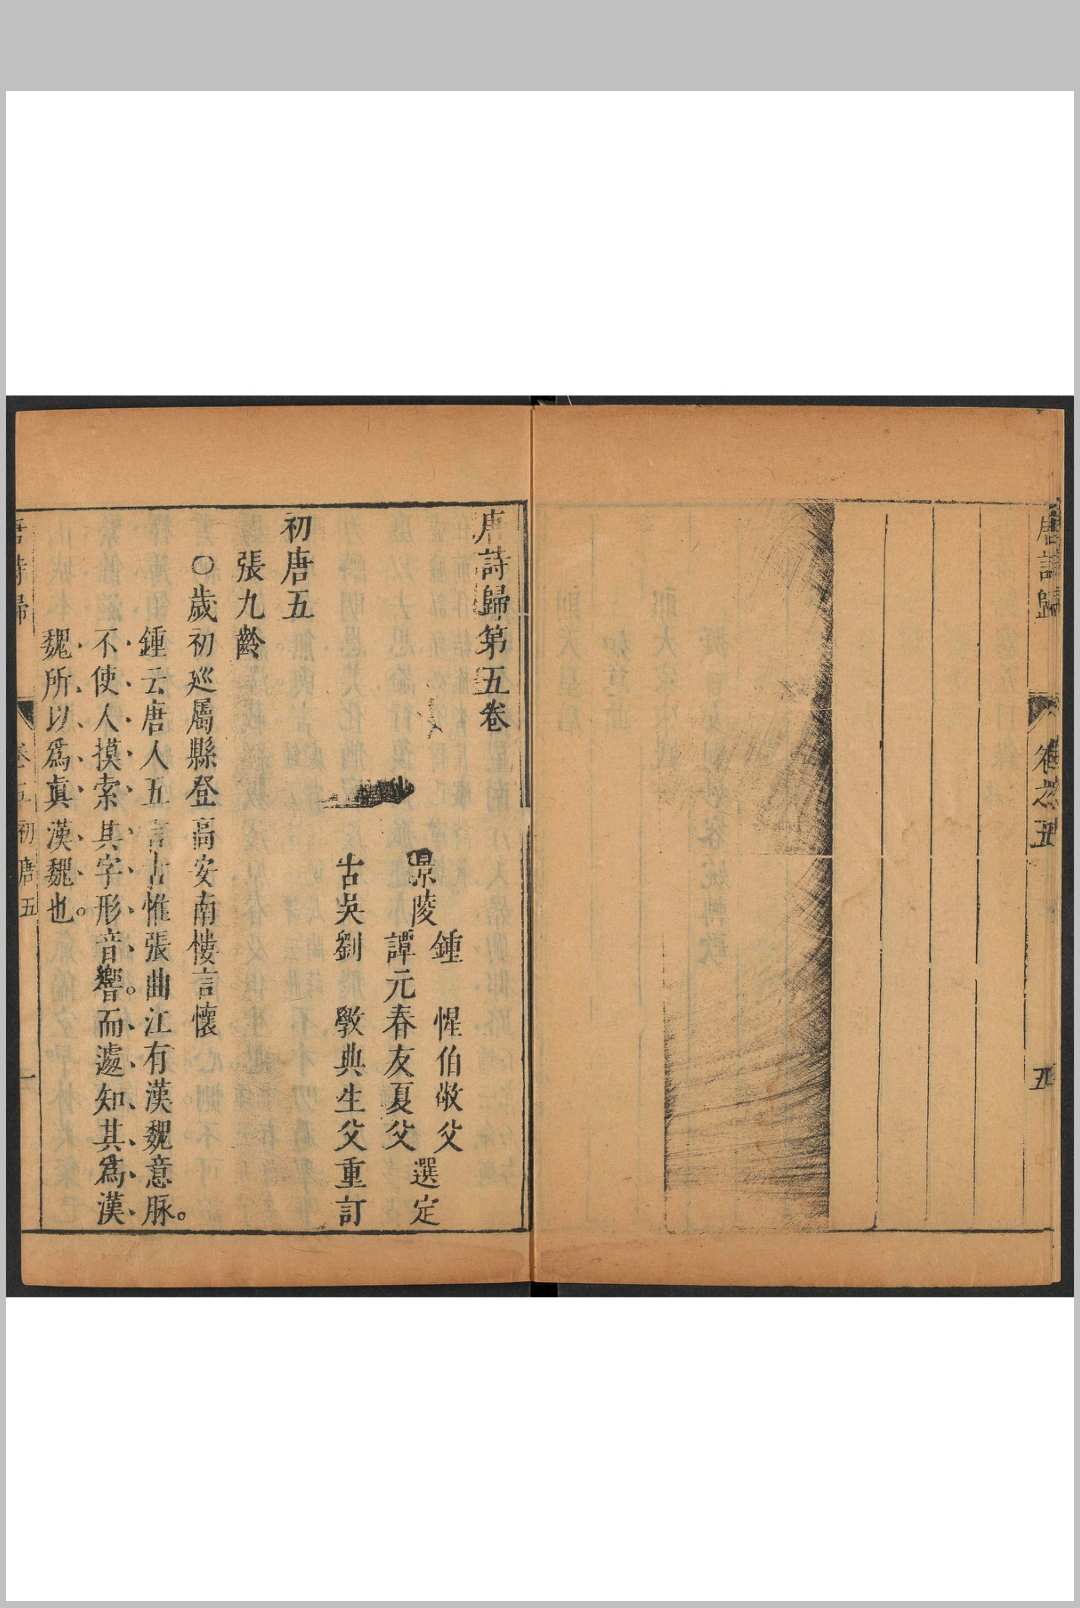 唐詩歸
卷之五
五
唐詩歸第五卷
景陵
鍾惺伯敬父
譚元春友夏父
選定
古吳劉斅典生父重訂
初唐五
張九齡
○歲初巡屬縣登高安南樓言懷
鍾云唐人五言古惟張曲江有漢魏意脉。
不使人摸索其字形音響。而遽知其爲漢
魏所以爲眞漢魏也。
唐詩歸
卷五
初唐五
一